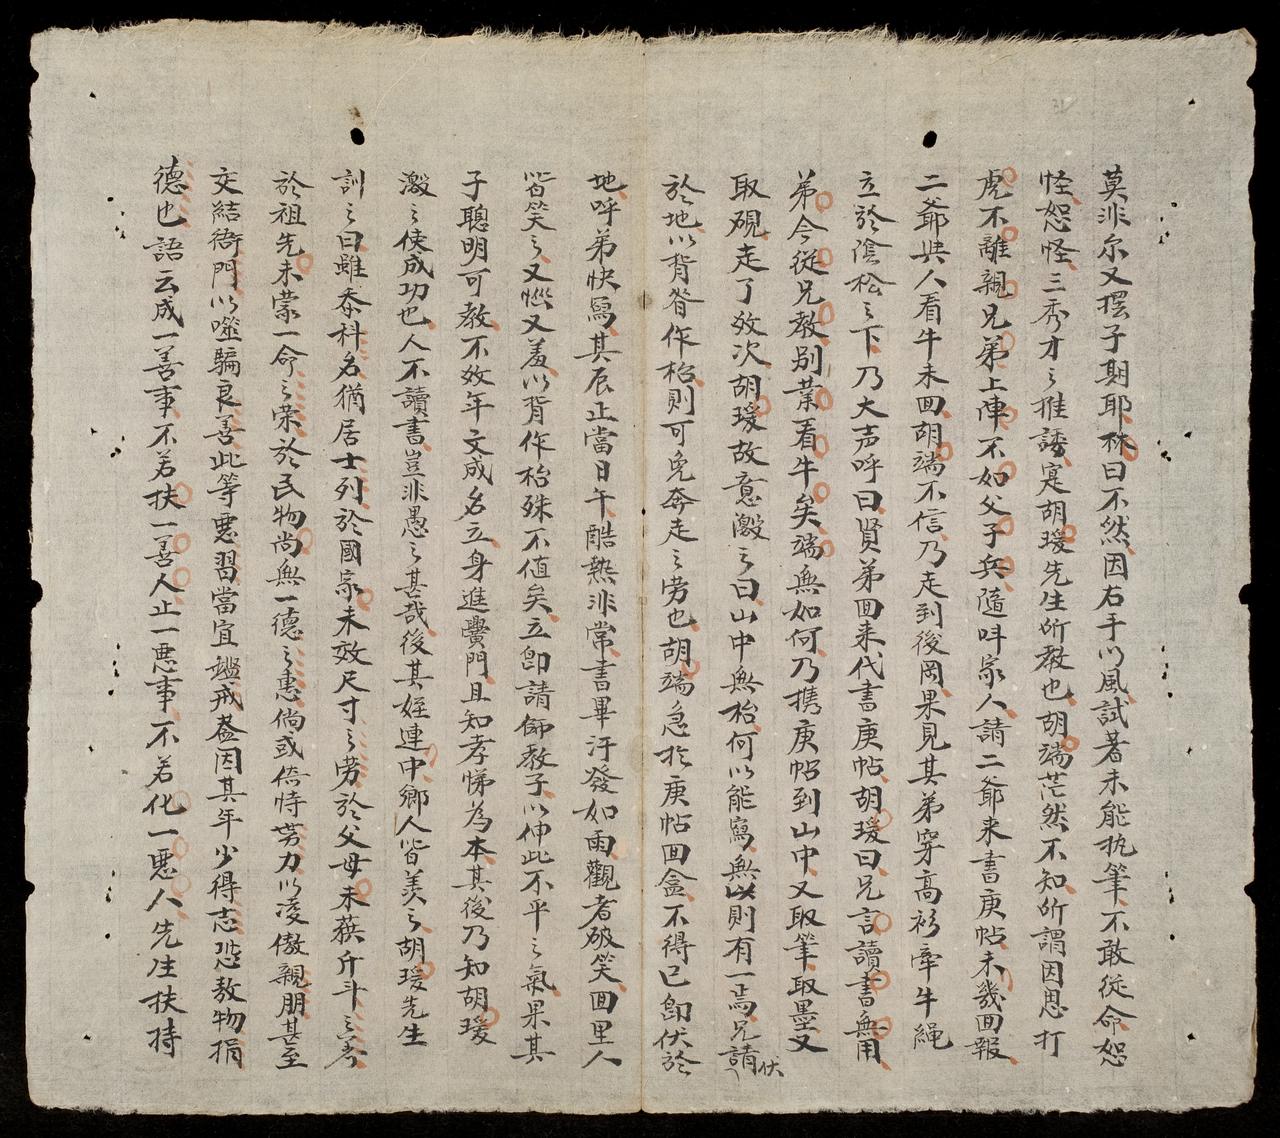 莫非尔又摆子期耶林曰不然因右手以風試著未能执筆不敢從命恕
怪恕怪三秀才之推誘寔胡瑗先生所教也胡端茫然不知所謂因思打
虎不離親兄弟上陣不如父子兵隨呌家人請二爺来書庚帖未幾回報
二爺與人看牛未回胡端不信乃走到後岡果見其弟穿高衫牽牛繩
立於陰松之下乃大声呼曰賢弟回来代書庚帖胡瑗曰兄言讀書無用
弟今從兄教别業看牛矣端無如何乃携庚帖到山中又取筆取墨又
取硯走了效次胡瑗故意激之曰山中無枱何以能寫無以則有一焉兄請伏
於地以背脊作枱則可免奔走之劳也胡端急於庚帖回盒不得已卽伏於
地呼弟快寫其辰正當日午酷熱非常書畢汗發如雨觀者破笑回里人
皆笑之又惱又羞以背作枱殊不值矣立卽請師教子以伸此不平之氣果其
子聰明可教不效年文成名立身進黌門且知孝悌為本其後乃知胡瑗
激之使成功也人不讀書豈非愚之甚哉後其姪連中鄉人皆羡之胡瑗先生
訓之曰雖忝科名猶居士列於國家未效尺寸之劳於父母未蓺斤斗之养
於祖先未蒙一命之荣於民物尚無一德之惠倘或倚恃势力以凌傲親朋甚至
交結衙門以噬騙良善此等悪習當宜鑑戒盖因其年少得志恐敖物損
德也語云成一善事不若扶一善人止一悪事不若化一悪人先生扶持